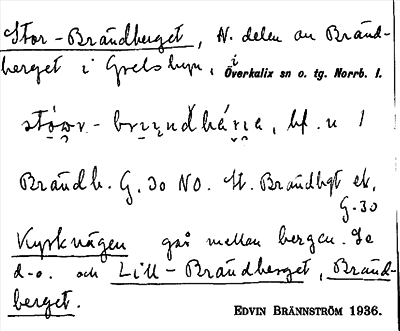 Stor-Brändberget, N. delen av Bränd-
berget i Grelsbyn, i Överkalix sn o. tg. Norrb. l.
bf. u 1
Brändb. G. 30 NO. St. Brändbgt ek.
G. 30
Kyrkvägen går mellan bergen. Se
d-o. och Lill-Brändberget, Bränd-
berget.
EDVIN BRÄNNSTRÖM 1936.